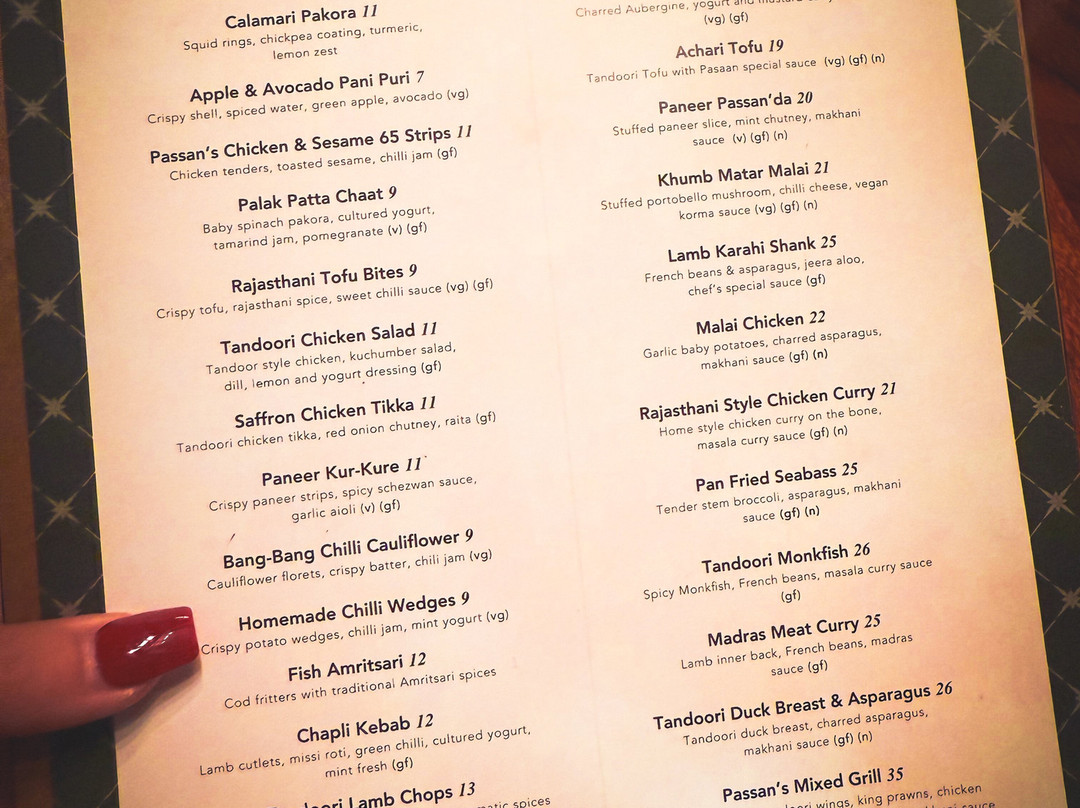 Calamari Pakora 11
Squid rings, chickpea coating, turmeric,
lemon zest
Apple & Avocado Pani Puri 7
Crispy shell, spiced water, green apple, avocado (vg)
Passan's Chicken & Sesame 65 Strips 11
Chicken tenders, toasted sesame, chilli jam (gf)
Palak Patta Chaat 9
Baby spinach pakora, cultured yogurt,
tamarind jam, pomegranate (v) (gf)
Rajasthani Tofu Bites 9
Crispy tofu, rajasthani spice, sweet chilli sauce (vg) (gf)
Tandoori Chicken Salad 11
Tandoor style chicken, kuchumber salad,
dill, lemon and yogurt dressing (gf)
Saffron Chicken Tikka 11
Tandoori chicken tikka, red onion chutney, raita (gf)
Paneer Kur-Kure 11
Crispy paneer strips, spicy schezwan sauce,
garlic aioli (v) (gf)
Bang-Bang Chilli Cauliflower 9
Cauliflower florets, crispy batter, chili jam (vg)
Homemade Chilli Wedges 9
Crispy potato wedges, chilli jam, mint yogurt (vg)
Fish Amritsari 12
Cod fritters with traditional Amritsari spices
Chapli Kebab 12
Lamb cutlets, missi roti, green chilli, cultured yogurt,
mint fresh (gf)
Lamb Chops 13
spices
Charred Aubergine, yogurt and
(vg) (gf)
Achari Tofu 19
Tandoori Tofu with Pasaan special sauce (vg) (gf) (n)
Paneer Passan'da 20
Stuffed paneer slice, mint chutney, makhani
sauce (v) (gf) (n)
Khumb Matar Malai 21
Stuffed portobello mushroom, chilli cheese, vegan
korma sauce (vg) (gf) (n)
Lamb Karahi Shank 25
French beans & asparagus, jeera aloo,
chef's special sauce (gf)
Malai Chicken 22
Garlic baby potatoes, charred asparagus,
makhani sauce (gf) (n)
Rajasthani Style Chicken Curry 21
Home style chicken curry on the bone,
masala curry sauce (gf) (n)
Pan Fried Seabass 25
Tender stem broccoli, asparagus, makhani
sauce (gf) (n)
Tandoori Monkfish 26
Spicy Monkfish, French beans, masala curry sauce
(gf)
Madras Meat Curry 25
Lamb inner back, French beans, madras
sauce (gf)
Tandoori Duck Breast & Asparagus 26
Tandoori duck breast, charred asparagus,
makhani sauce (gf) (n)
Passan's Mixed Grill 35
wings, king prawns, chicken